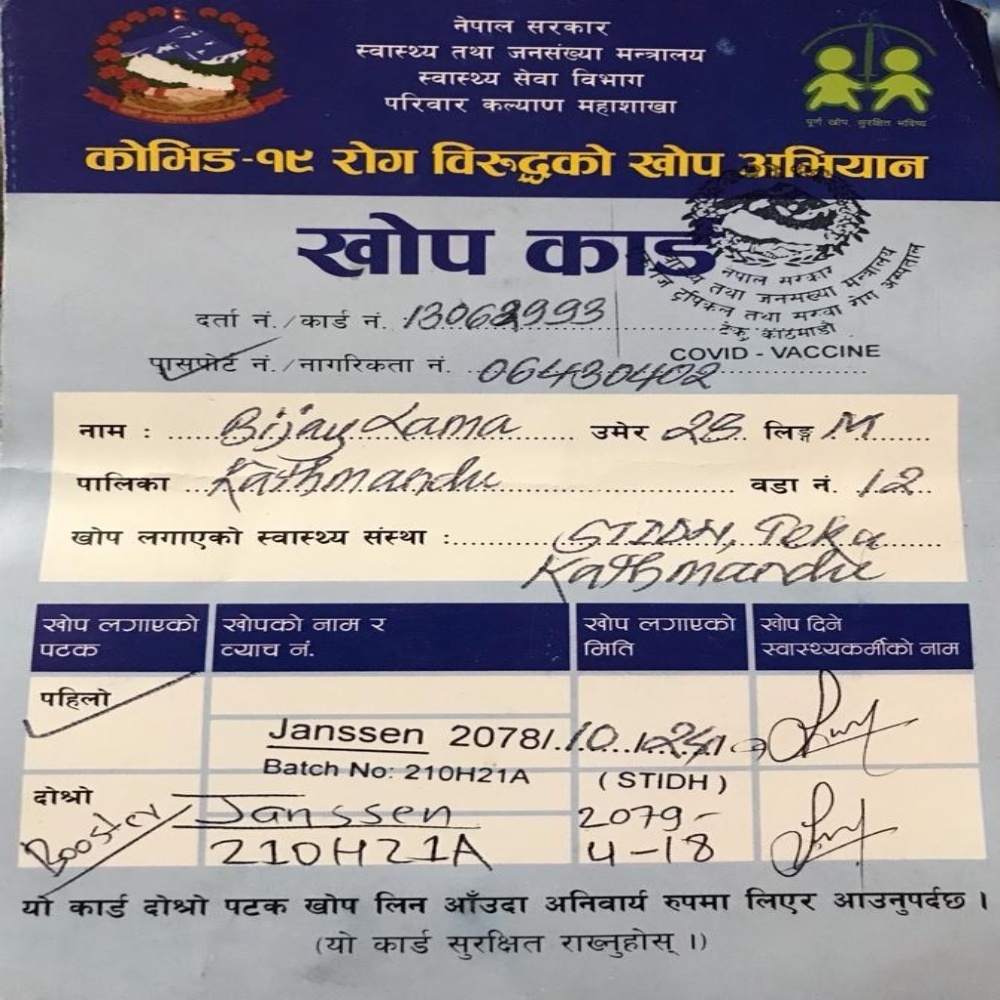 नेपाल सरकार
स्वास्थ्य तथा जनसंख्या मन्त्रालय
स्वास्थ्य सेवा विभाग
परिवार कल्याण महाशाखा
पूर्ण खोप, सुरक्षित भविष्य
कोभिड-१९ रोग विरुद्धको खोप अभियान
खोप कार्ड
नेपाल सरकार
स्वास्थ्य तथा जनसंख्या मन्त्रालय
ट्रपिकल तथा सरुवा रोग अस्पताल
टेकु, काठमाडौं
COVID - VACCINE
दर्ता नं./कार्ड नं. 13062993
पासपोर्ट नं./नागरिकता नं. 064430402
नाम : Bijay Lama उमेर 28 लिङ्ग M
पालिका Kathmandu वडा नं. 12
खोप लगाएको स्वास्थ्य संस्था : STIDH, Teku
Kathmandu
खोप लगाएको पटक खोपको नाम र ब्याच नं. खोप लगाएको मिति खोप दिने स्वास्थ्यकर्मीको नाम
पहिलो
Janssen 2078/10/24
Batch No: 210H21A (STIDH)
दोश्रो
Booster Janssen 2079-
210H21A 4-18
यो कार्ड दोश्रो पटक खोप लिन आउँदा अनिवार्य रुपमा लिएर आउनुपर्दछ ।
(यो कार्ड सुरक्षित राख्नुहोस् ।)